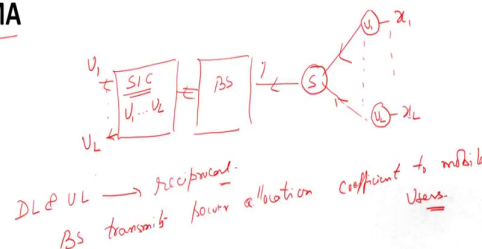 MA
U₁ — x₁
U₁
SIC
U₁ ... U_L
BS
y
S
U_L
U_L — x_L
DL & UL → reciprocal.
BS transmit power allocation coefficient to mobile
Users